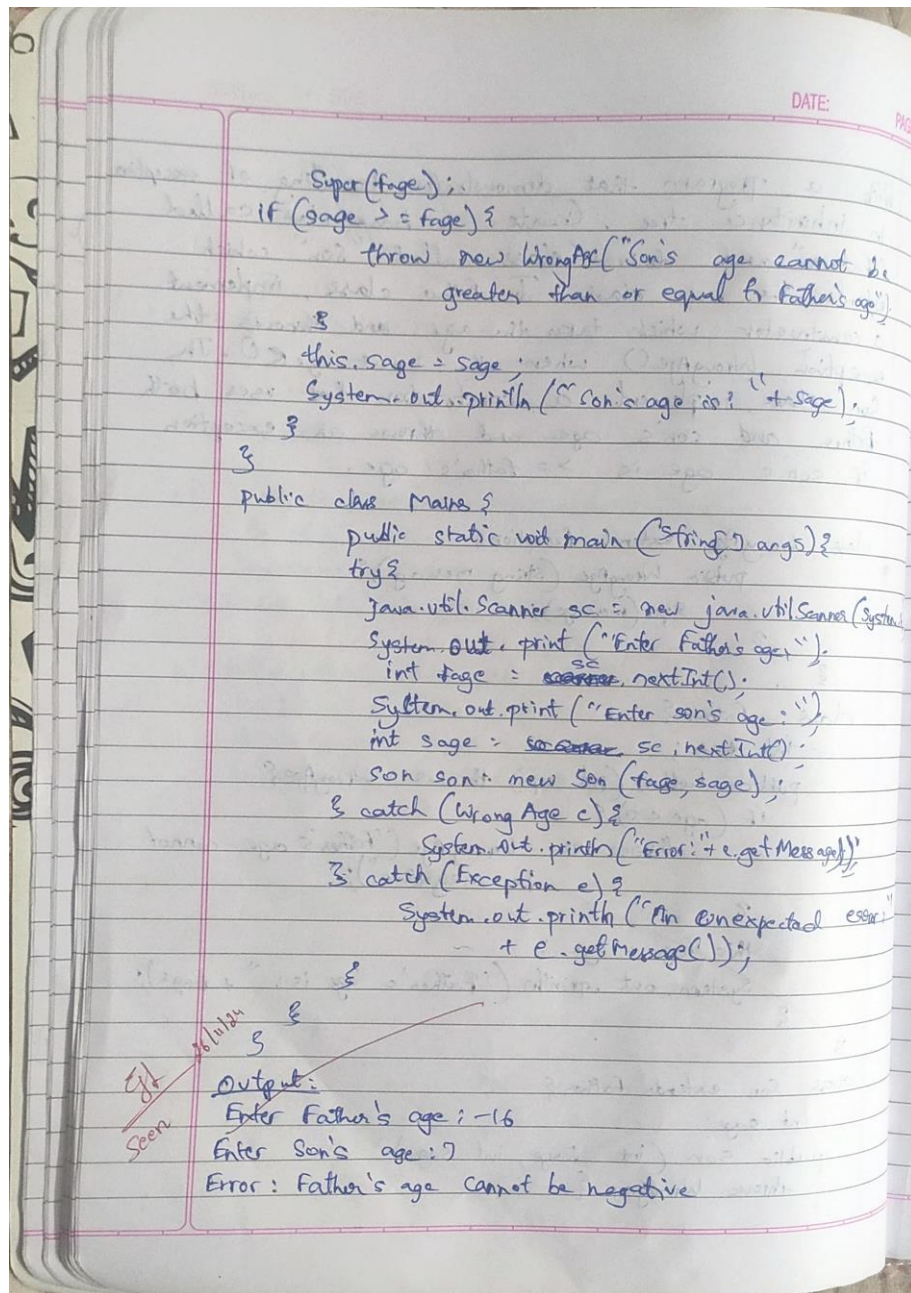 DATE:
PAG
Super(fage);
if (sage >= fage) {
throw new WrongAge("Son's age cannot be
greater than or equal to Father's age");
}
this.sage = sage;
System.out.println("Son's age is: " + sage);
}
}
public class Main {
public static void main (String[] args) {
try {
java.util.Scanner sc = new java.util.Scanner(System.
System.out.print("Enter Father's age: ");
int fage = sc.nextInt();
System.out.print("Enter son's age: ");
int sage = sc.nextInt();
Son son = new Son (fage, sage);
} catch (Wrong Age e) {
System.out.println("Error: " + e.getMessage())
} catch (Exception e) {
System.out.println("An unexpected error:"
+ e.getMessage());
}
}
}
6/11/24
Seen
Output:
Enter Father's age: -16
Enter Son's age: 7
Error: Father's age cannot be negative